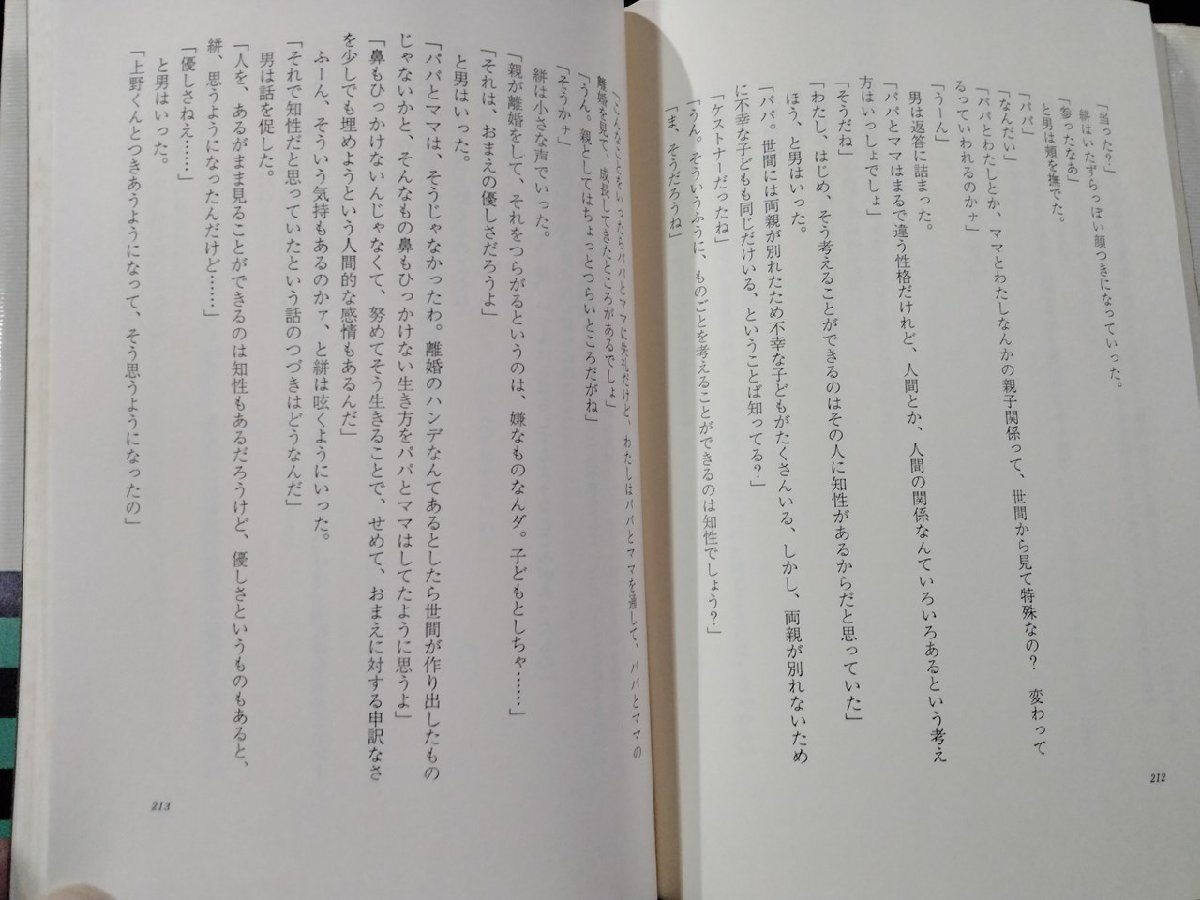 「当った？」
絣はいたずらっぽい顔つきになっていった。
「参ったなあ」
と男は頬を撫でた。
「パパ」
「なんだい」
「パパとわたしとか、ママとわたしなんかの親子関係って、世間から見て特殊なの？　変わって
るっていわれるのかナ」
「うーん」
男は返答に詰まった。
「パパとママはまるで違う性格だけれど、人間とか、人間の関係なんていろいろあるという考え
方はいっしょでしょ」
「そうだね」
「わたし、はじめ、そう考えることができるのはその人に知性があるからだと思っていた」
ほう、と男はいった。
「パパ。世間には両親が別れたため不幸な子どもがたくさんいる、しかし、両親が別れないため
に不幸な子どもも同じだけいる、ということば知ってる？」
「ケストナーだったね」
「うん。そういうふうに、ものごとを考えることができるのは知性でしょう？」
「ま、そうだろうね」
212
「こんなことをいったらパパとママに失礼だけど、わたしはパパとママを通して、パパとママの
離婚を見て、成長してきたところがあるでしょ」
「うん。親としてはちょっとつらいところだがね」
「そうかナ」
絣は小さな声でいった。
「親が離婚をして、それをつらがるというのは、嫌なものなんダ。子どもとしちゃ……」
「それは、おまえの優しさだろうよ」
と男はいった。
「パパとママは、そうじゃなかったわ。離婚のハンデなんてあるとしたら世間が作り出したもの
じゃないかと、そんなもの鼻もひっかけない生き方をパパとママはしてたように思うよ」
「鼻もひっかけないんじゃなくて、努めてそう生きることで、せめて、おまえに対する申訳なさ
を少しでも埋めようという人間的な感情もあるんだ」
ふーん、そういう気持もあるのかァ、と絣は呟くようにいった。
「それで知性だと思っていたという話のつづきはどうなんだ」
男は話を促した。
「人を、あるがまま見ることができるのは知性もあるだろうけど、優しさというものもあると、
絣、思うようになったんだけど……」
「優しさねえ……」
と男はいった。
「上野くんとつきあうようになって、そう思うようになったの」
213